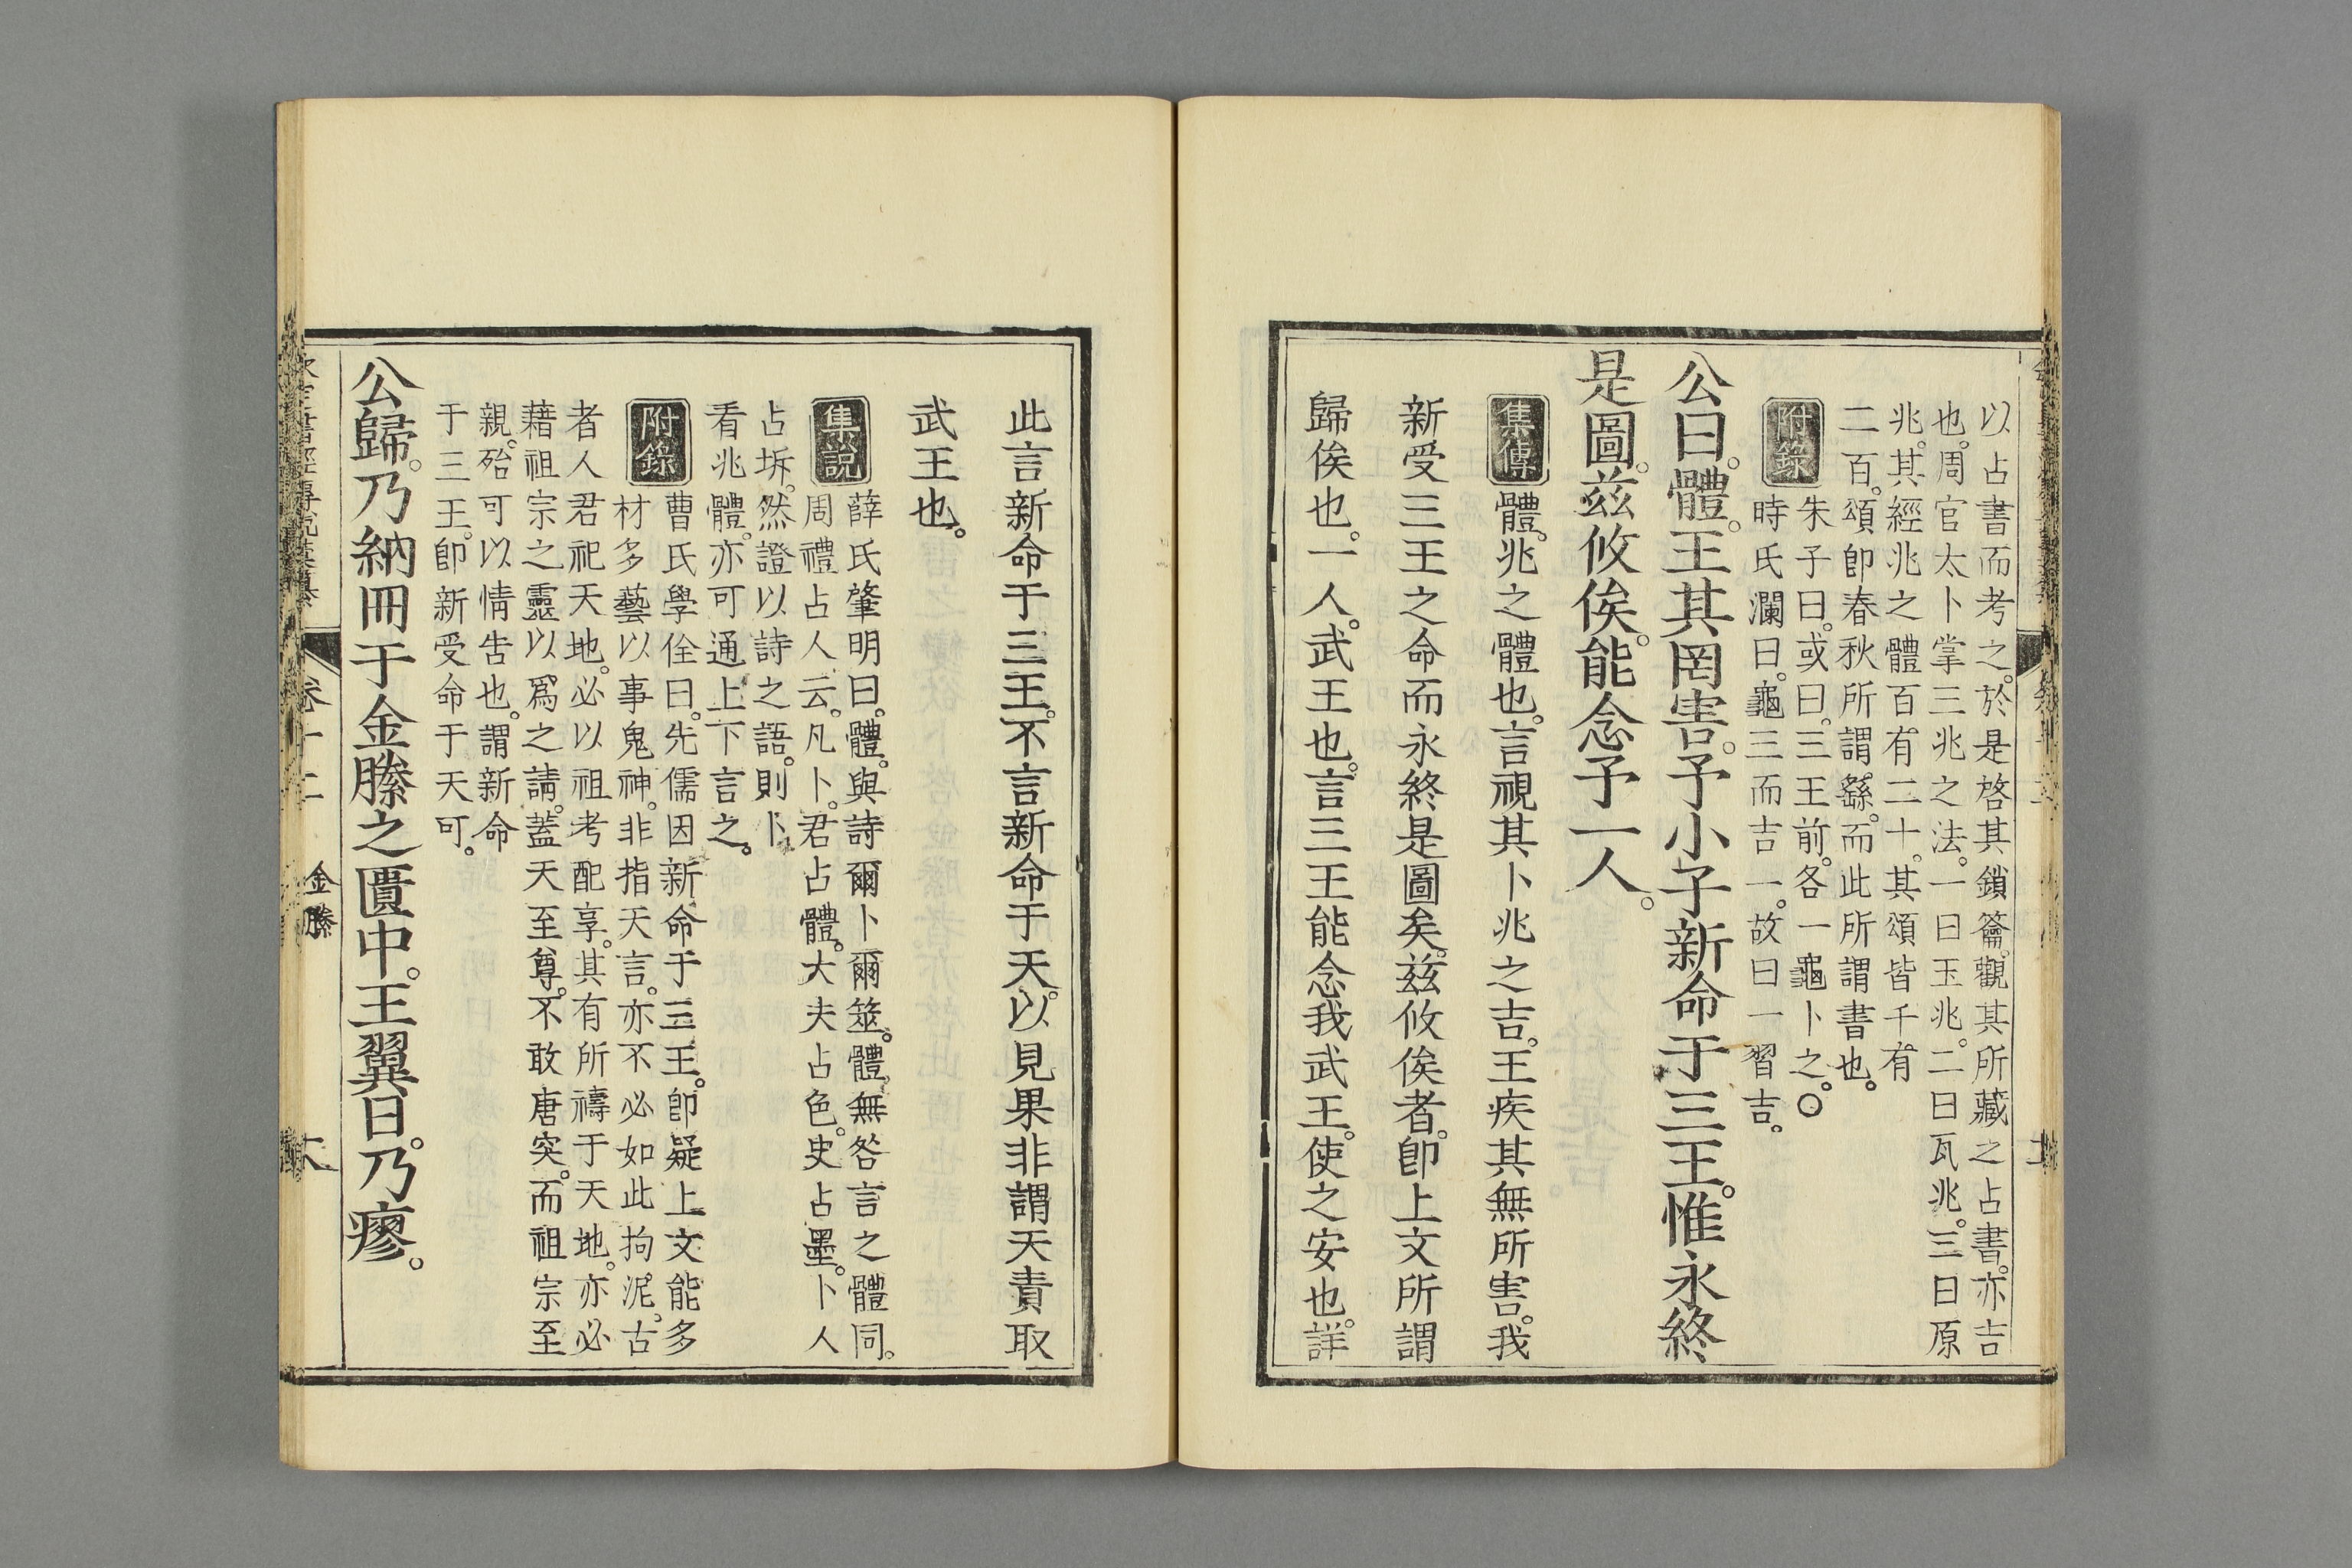 以占書而考之。於是啓其鎖籥。觀其所藏之占書。亦吉
也。周官太卜掌三兆之法。一曰玉兆。二曰瓦兆。三曰原
兆。其經兆之體百有二十。其頌皆千有
二百。頌卽春秋所謂繇。而此所謂書也。
附錄
朱子曰。或曰。三王前。各一龜卜之。○
時氏瀾曰。龜三而吉一。故曰一習吉。
公曰。體。王其罔害。予小子新命于三王。惟永終
是圖。茲攸俟。能念予一人。
集傳
體。兆之體也。言視其卜兆之吉。王疾其無所害。我
新受三王之命而永終是圖矣。茲攸俟者。卽上文所謂
歸俟也。一人。武王也。言三王能念我武王。使之安也。詳
此言新命于三王。不言新命于天。以見果非謂天責取
武王也。
集說
薛氏肇明曰。體。與詩爾卜爾筮。體無咎言之體同。
周禮占人云。凡卜。君占體。大夫占色。史占墨。卜人
占坼。然證以詩之語。則卜
看兆體。亦可通上下言之。
附錄
曹氏學佺曰。先儒因新命于三王。卽疑上文能多
材多藝以事鬼神。非指天言。亦不必如此拘泥。古
者人君祀天地。必以祖考配享。其有所禱于天地。亦必
藉祖宗之靈以爲之請。蓋天至尊。不敢唐突。而祖宗至
親。殆可以情告也。謂新命
于三王。卽新受命于天可。
公歸。乃納冊于金縢之匱中。王翼日。乃瘳。
卷十二 金縢